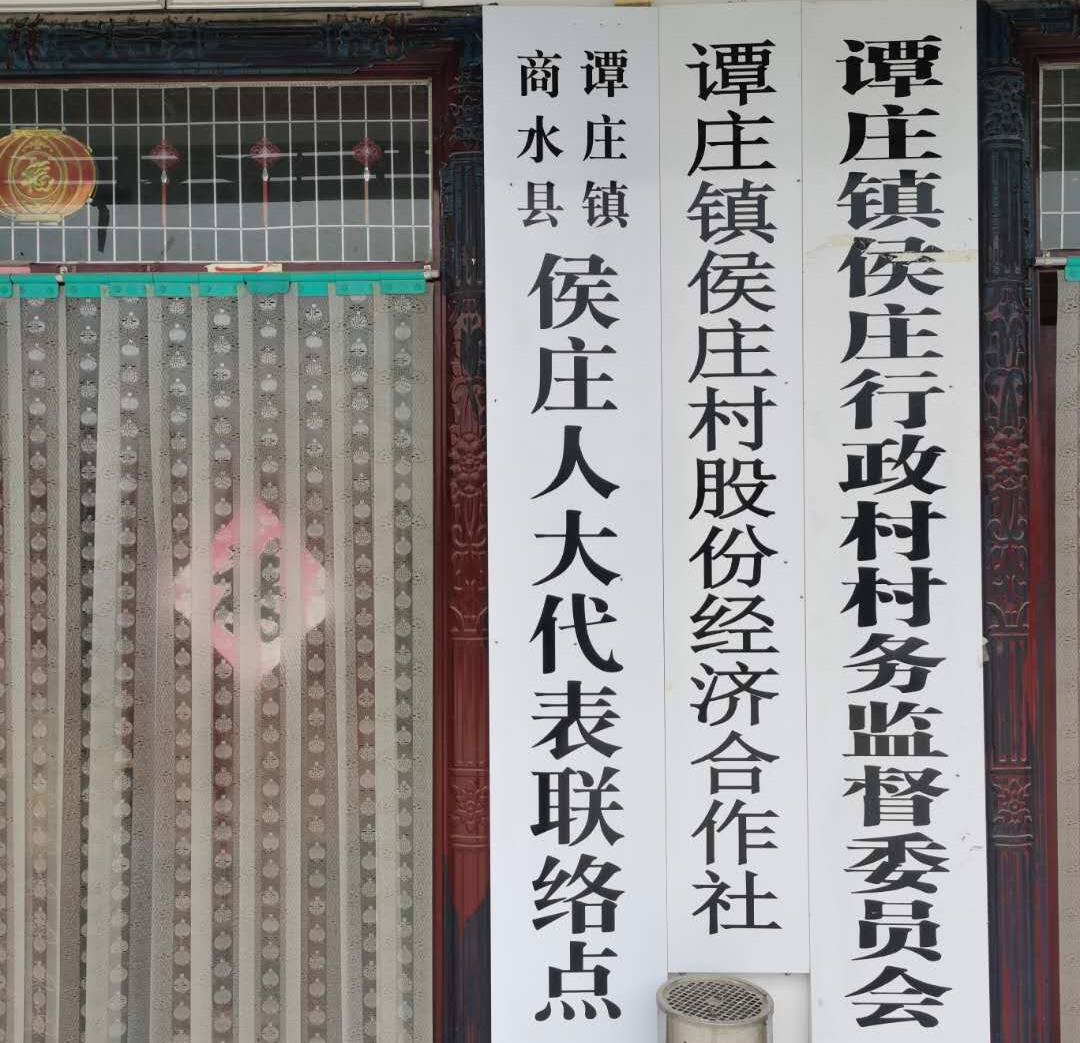 谭庄镇侯庄行政村村务监督委员会
谭庄镇侯庄村股份经济合作社
谭庄镇
商水县
侯庄人大代表联络点
福